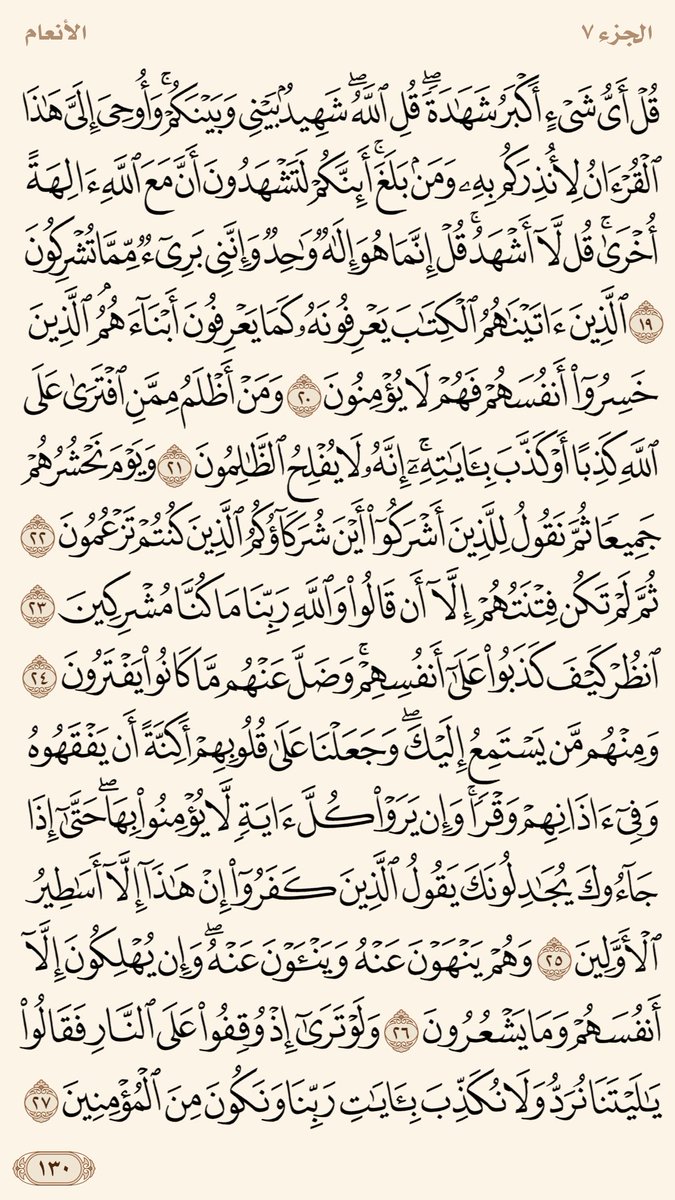 الجزء ٧
الأنعام
قُلْ أَىُّ شَىْءٍ أَكْبَرُ شَهَٰدَةًۖ قُلِ ٱللَّهُۖ شَهِيدُۢ بَيْنِى وَبَيْنَكُمْۚ وَأُوحِىَ إِلَىَّ هَٰذَا
ٱلْقُرْءَانُ لِأُنذِرَكُم بِهِۦ وَمَنۢ بَلَغَۚ أَئِنَّكُمْ لَتَشْهَدُونَ أَنَّ مَعَ ٱللَّهِ ءَالِهَةً
أُخْرَىٰۚ قُل لَّآ أَشْهَدُۚ قُلْ إِنَّمَا هُوَ إِلَٰهٌ وَٰحِدٌ وَإِنَّنِى بَرِىٓءٌ مِّمَّا تُشْرِكُونَ
١٩ ٱلَّذِينَ ءَاتَيْنَٰهُمُ ٱلْكِتَٰبَ يَعْرِفُونَهُۥ كَمَا يَعْرِفُونَ أَبْنَآءَهُمُۘ ٱلَّذِينَ
خَسِرُوٓا۟ أَنفُسَهُمْ فَهُمْ لَا يُؤْمِنُونَ ٢٠ وَمَنْ أَظْلَمُ مِمَّنِ ٱفْتَرَىٰ عَلَى
ٱللَّهِ كَذِبًا أَوْ كَذَّبَ بِـَٔايَٰتِهِۦٓۚ إِنَّهُۥ لَا يُفْلِحُ ٱلظَّٰلِمُونَ ٢١ وَيَوْمَ نَحْشُرُهُمْ
جَمِيعًا ثُمَّ نَقُولُ لِلَّذِينَ أَشْرَكُوٓا۟ أَيْنَ شُرَكَآؤُكُمُ ٱلَّذِينَ كُنتُمْ تَزْعُمُونَ ٢٢
ثُمَّ لَمْ تَكُن فِتْنَتُهُمْ إِلَّآ أَن قَالُوا۟ وَٱللَّهِ رَبِّنَا مَا كُنَّا مُشْرِكِينَ ٢٣
ٱنظُرْ كَيْفَ كَذَبُوا۟ عَلَىٰٓ أَنفُسِهِمْۚ وَضَلَّ عَنْهُم مَّا كَانُوا۟ يَفْتَرُونَ ٢٤
وَمِنْهُم مَّن يَسْتَمِعُ إِلَيْكَۖ وَجَعَلْنَا عَلَىٰ قُلُوبِهِمْ أَكِنَّةً أَن يَفْقَهُوهُ
وَفِىٓ ءَاذَانِهِمْ وَقْرًاۚ وَإِن يَرَوْا۟ كُلَّ ءَايَةٍ لَّا يُؤْمِنُوا۟ بِهَاۖ حَتَّىٰٓ إِذَا
جَآءُوكَ يُجَٰدِلُونَكَ يَقُولُ ٱلَّذِينَ كَفَرُوٓا۟ إِنْ هَٰذَآ إِلَّآ أَسَٰطِيرُ
ٱلْأَوَّلِينَ ٢٥ وَهُمْ يَنْهَوْنَ عَنْهُ وَيَنْـَٔوْنَ عَنْهُۖ وَإِن يُهْلِكُونَ إِلَّآ
أَنفُسَهُمْ وَمَا يَشْعُرُونَ ٢٦ وَلَوْ تَرَىٰٓ إِذْ وُقِفُوا۟ عَلَى ٱلنَّارِ فَقَالُوا۟
يَٰلَيْتَنَا نُرَدُّ وَلَا نُكَذِّبَ بِـَٔايَٰتِ رَبِّنَا وَنَكُونَ مِنَ ٱلْمُؤْمِنِينَ ٢٧
١٣٠